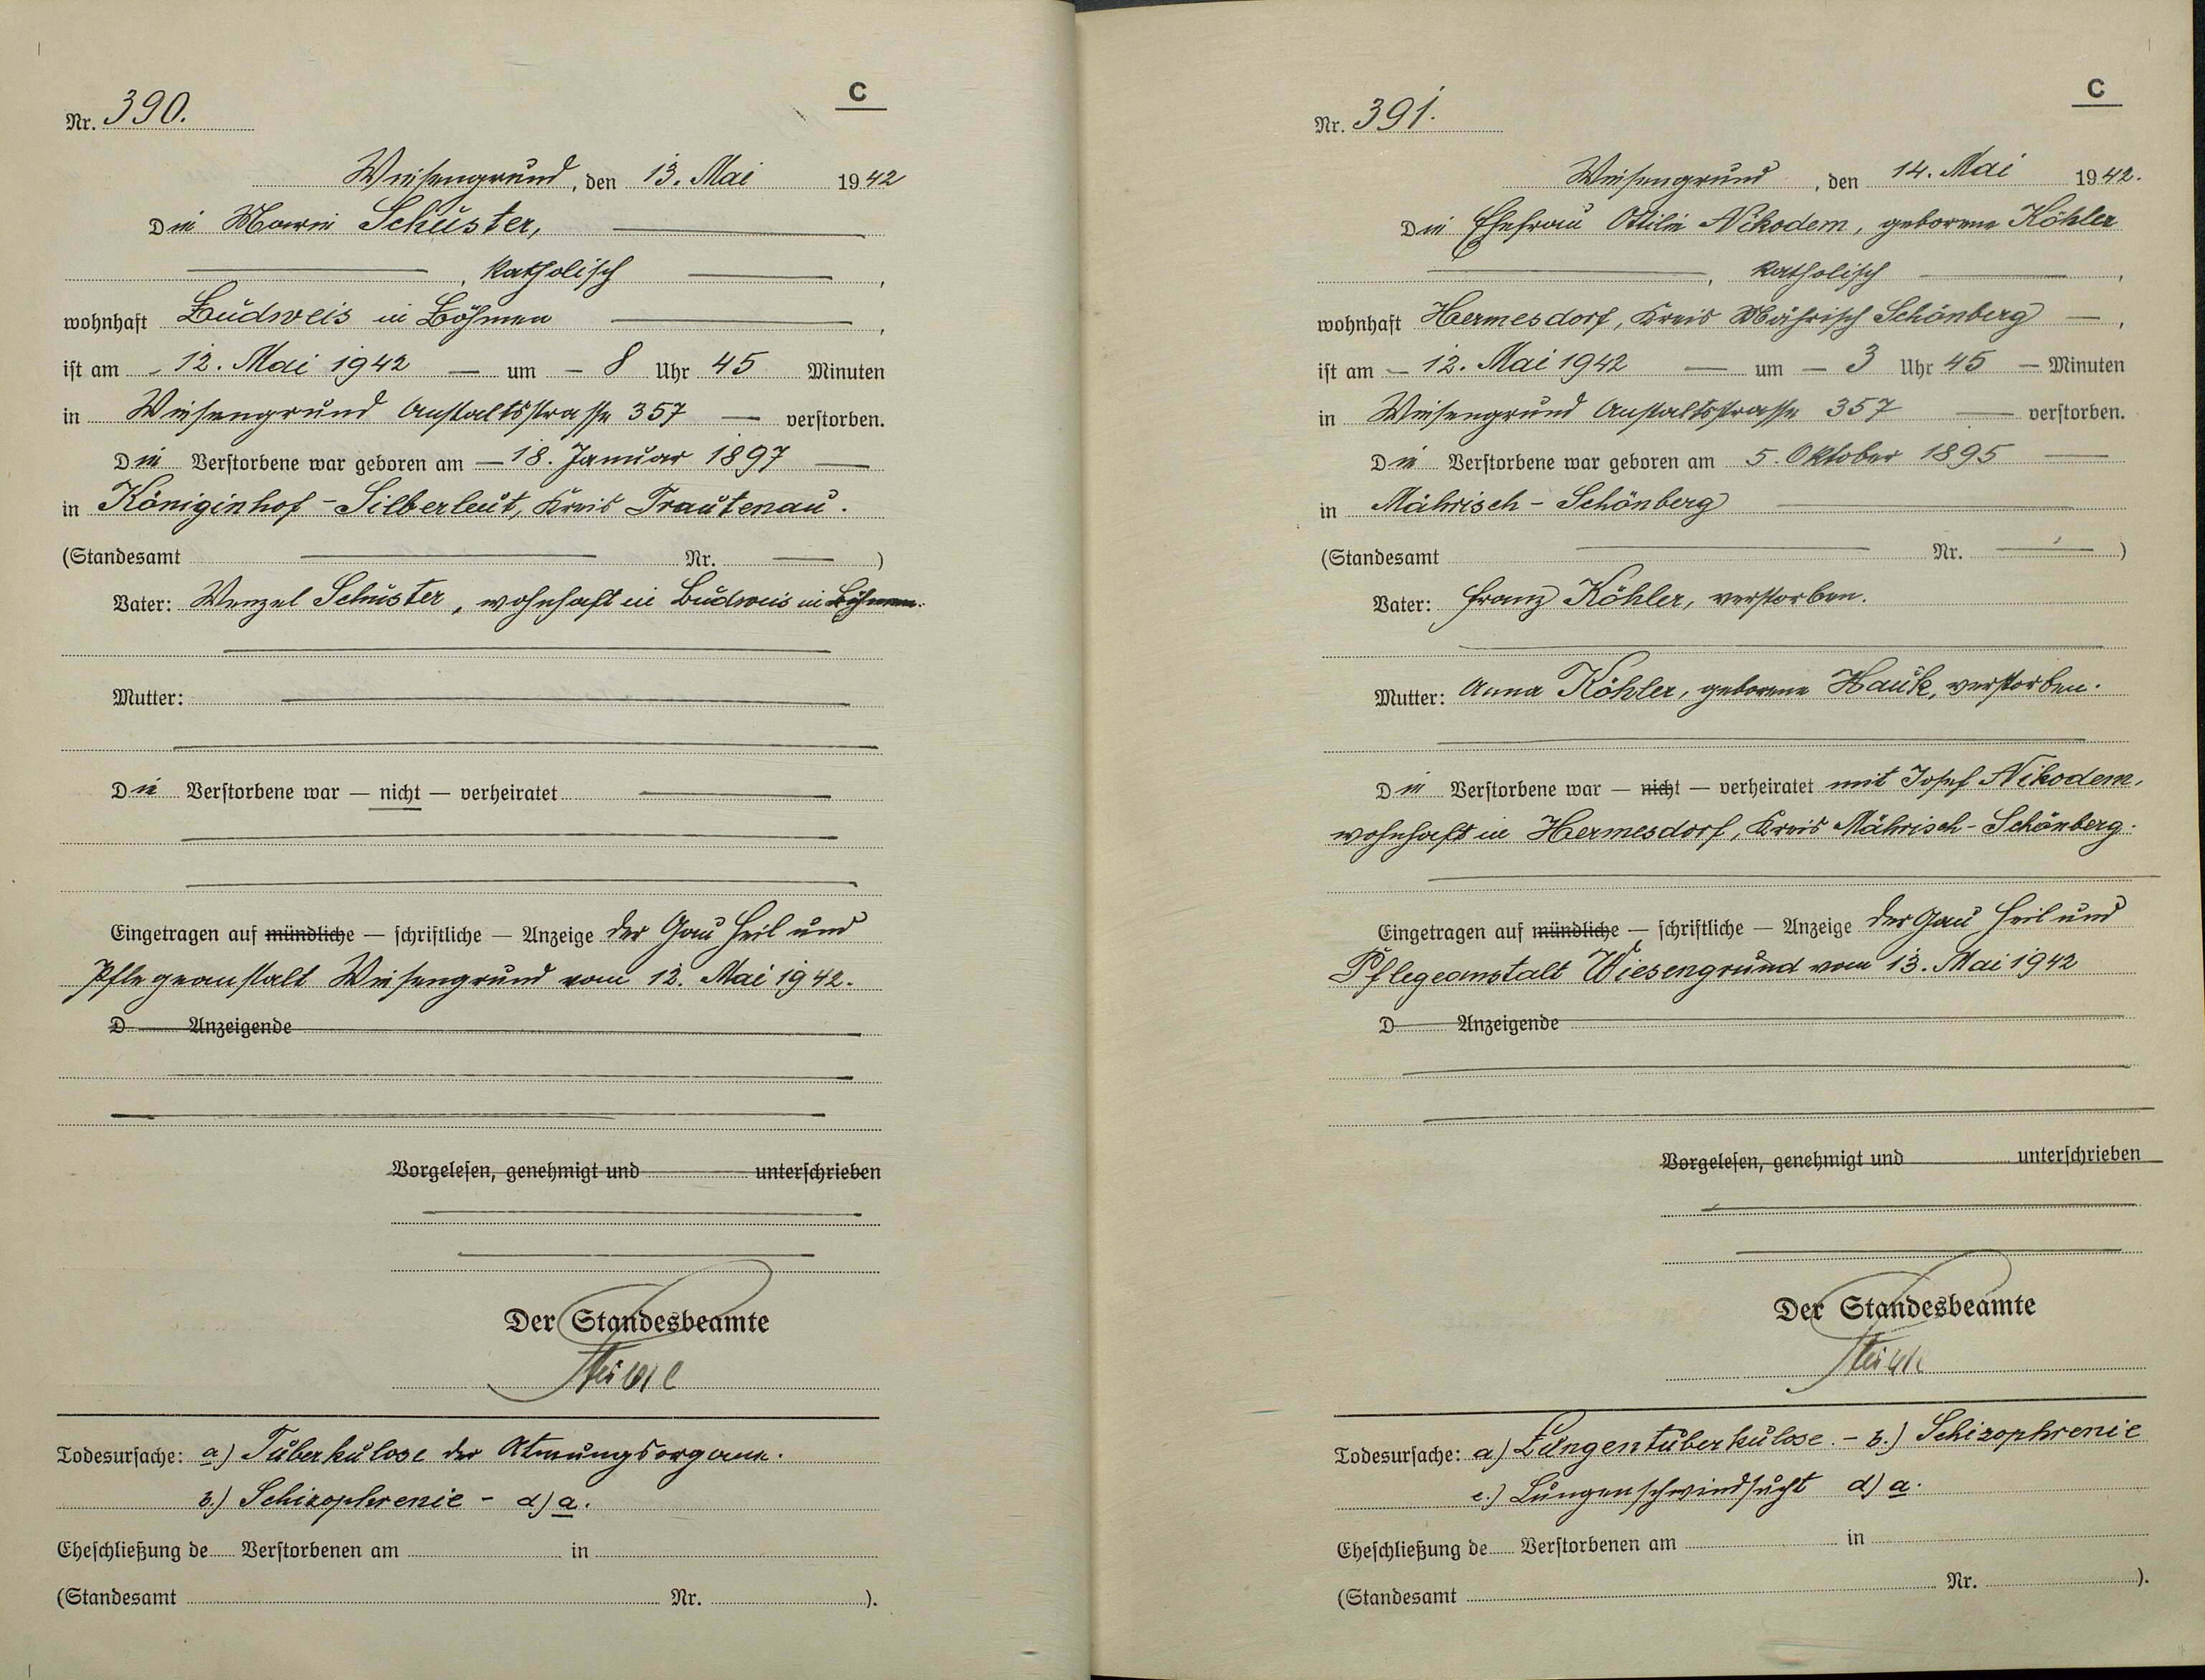 C
Nr. 390.
Wiesengrund, den 13. Mai 1942
Die Marie Schuster,
, katholisch ,
wohnhaft Budweis in Böhmen ,
ist am 12. Mai 1942 — um — 8 Uhr 45 Minuten
in Wiesengrund Anstaltsstrasse 357 — verstorben.
Die Verstorbene war geboren am — 18. Januar 1897 —
in Königinhof - Silberleut, Kreis Trautenau.
(Standesamt — Nr. — )
Vater: Wenzel Schuster, wohnhaft in Budweis in Böhmen.
Mutter:
Die Verstorbene war — nicht — verheiratet
Eingetragen auf mündliche — schriftliche — Anzeige der Gau Heil und
Pflegeanstalt Wiesengrund vom 12. Mai 1942.
D Anzeigende
Vorgelesen, genehmigt und unterschrieben
Der Standesbeamte
Todesursache: a.) Tuberkulose der Atmungsorgane.
b.) Schizophrenie - d) a.
Eheschließung de Verstorbenen am in
(Standesamt Nr. ).
C
Nr. 391.
Wiesengrund, den 14. Mai 1942.
Die Ehefrau Ottilie Nikodem, geborene Köhler
, katholisch ,
wohnhaft Hermesdorf, Kreis Mährisch Schönberg — ,
ist am — 12. Mai 1942 — um — 3 Uhr 45 — Minuten
in Wiesengrund Anstaltsstrasse 357 — verstorben.
Die Verstorbene war geboren am 5. Oktober 1895 —
in Mährisch - Schönberg
(Standesamt — Nr. — )
Vater: Franz Köhler, verstorben.
Mutter: Anna Köhler, geborene Hauk, verstorben.
Die Verstorbene war — nicht — verheiratet mit Josef Nikodem,
wohnhaft in Hermesdorf, Kreis Mährisch - Schönberg.
Eingetragen auf mündliche — schriftliche — Anzeige der Gau Heil und
Pflegeanstalt Wiesengrund vom 13. Mai 1942
D Anzeigende
Vorgelesen, genehmigt und unterschrieben
Der Standesbeamte
Todesursache: a) Lungentuberkulose. - b.) Schizophrenie
c.) Lungenschwindsucht d) a.
Eheschließung de Verstorbenen am in
(Standesamt Nr. ).